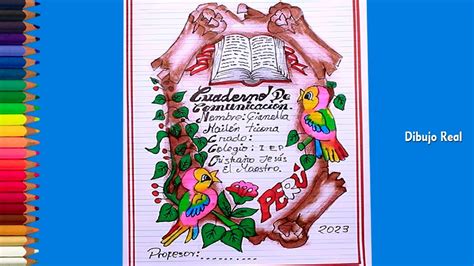 Cuaderno De
Comunicación.
Nombre: Gianella
Mailén Ticona
Grado:
Colegio: I E P
Cristiano Jesús
El Maestro.
PERÚ
2023
Profesor:..........
Dibujo Real